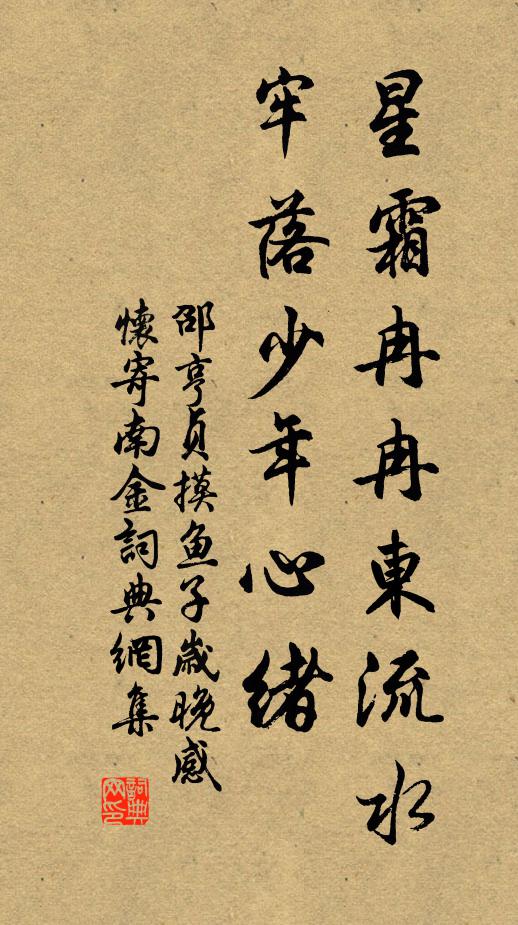 星霜冉冉東流水
牢落少年心緒
邵亨貞摸魚子歲晚感
懷寄南金詞典網集
詞典
网印